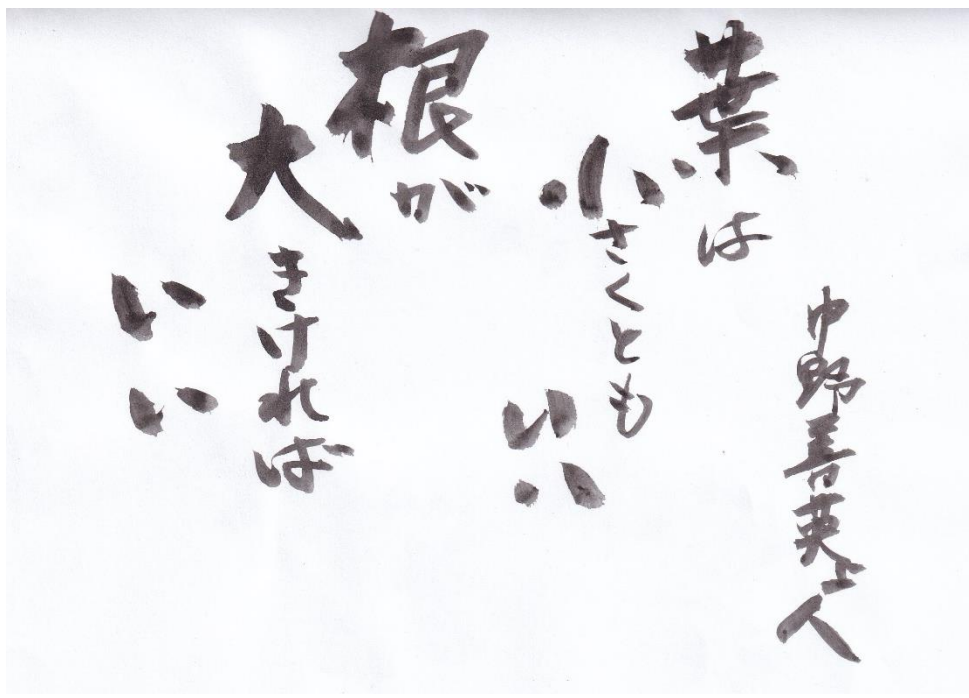 中野善英上人
葉は
小さくとも
いい
根が
大きければ
いい